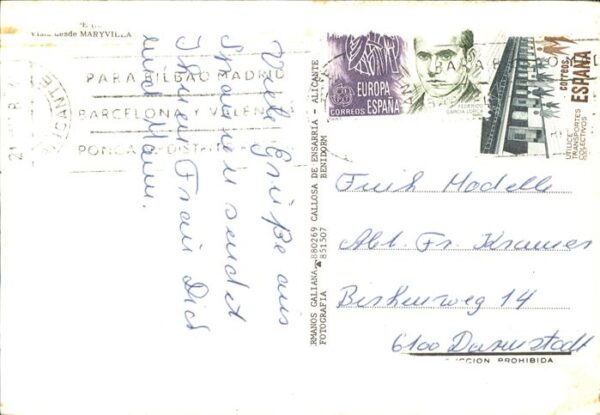 Vista desde MARYVILLA
ALICANTE
PARA BILBAO MADRID
BARCELONA Y VALENC
PONGA
DISTRI
21
Viele Grüße aus
Spanien sendet
Ihnen Frau Dich
und Mann.
HERMANOS GALIANA. 880269 CALLOSA DE ENSARRIA - ALICANTE
FOTOGRAFIA 851507 BENIDORM
EUROPA
ESPAÑA
CORREOS
FEDERICO
GARCIA LORCA
CORREOS
ESPAÑA
UTILICE
TRANSPORTES
COLECTIVOS
Abt. Fr. Kramer
14
6100 Darmstadt
PROHIBIDA